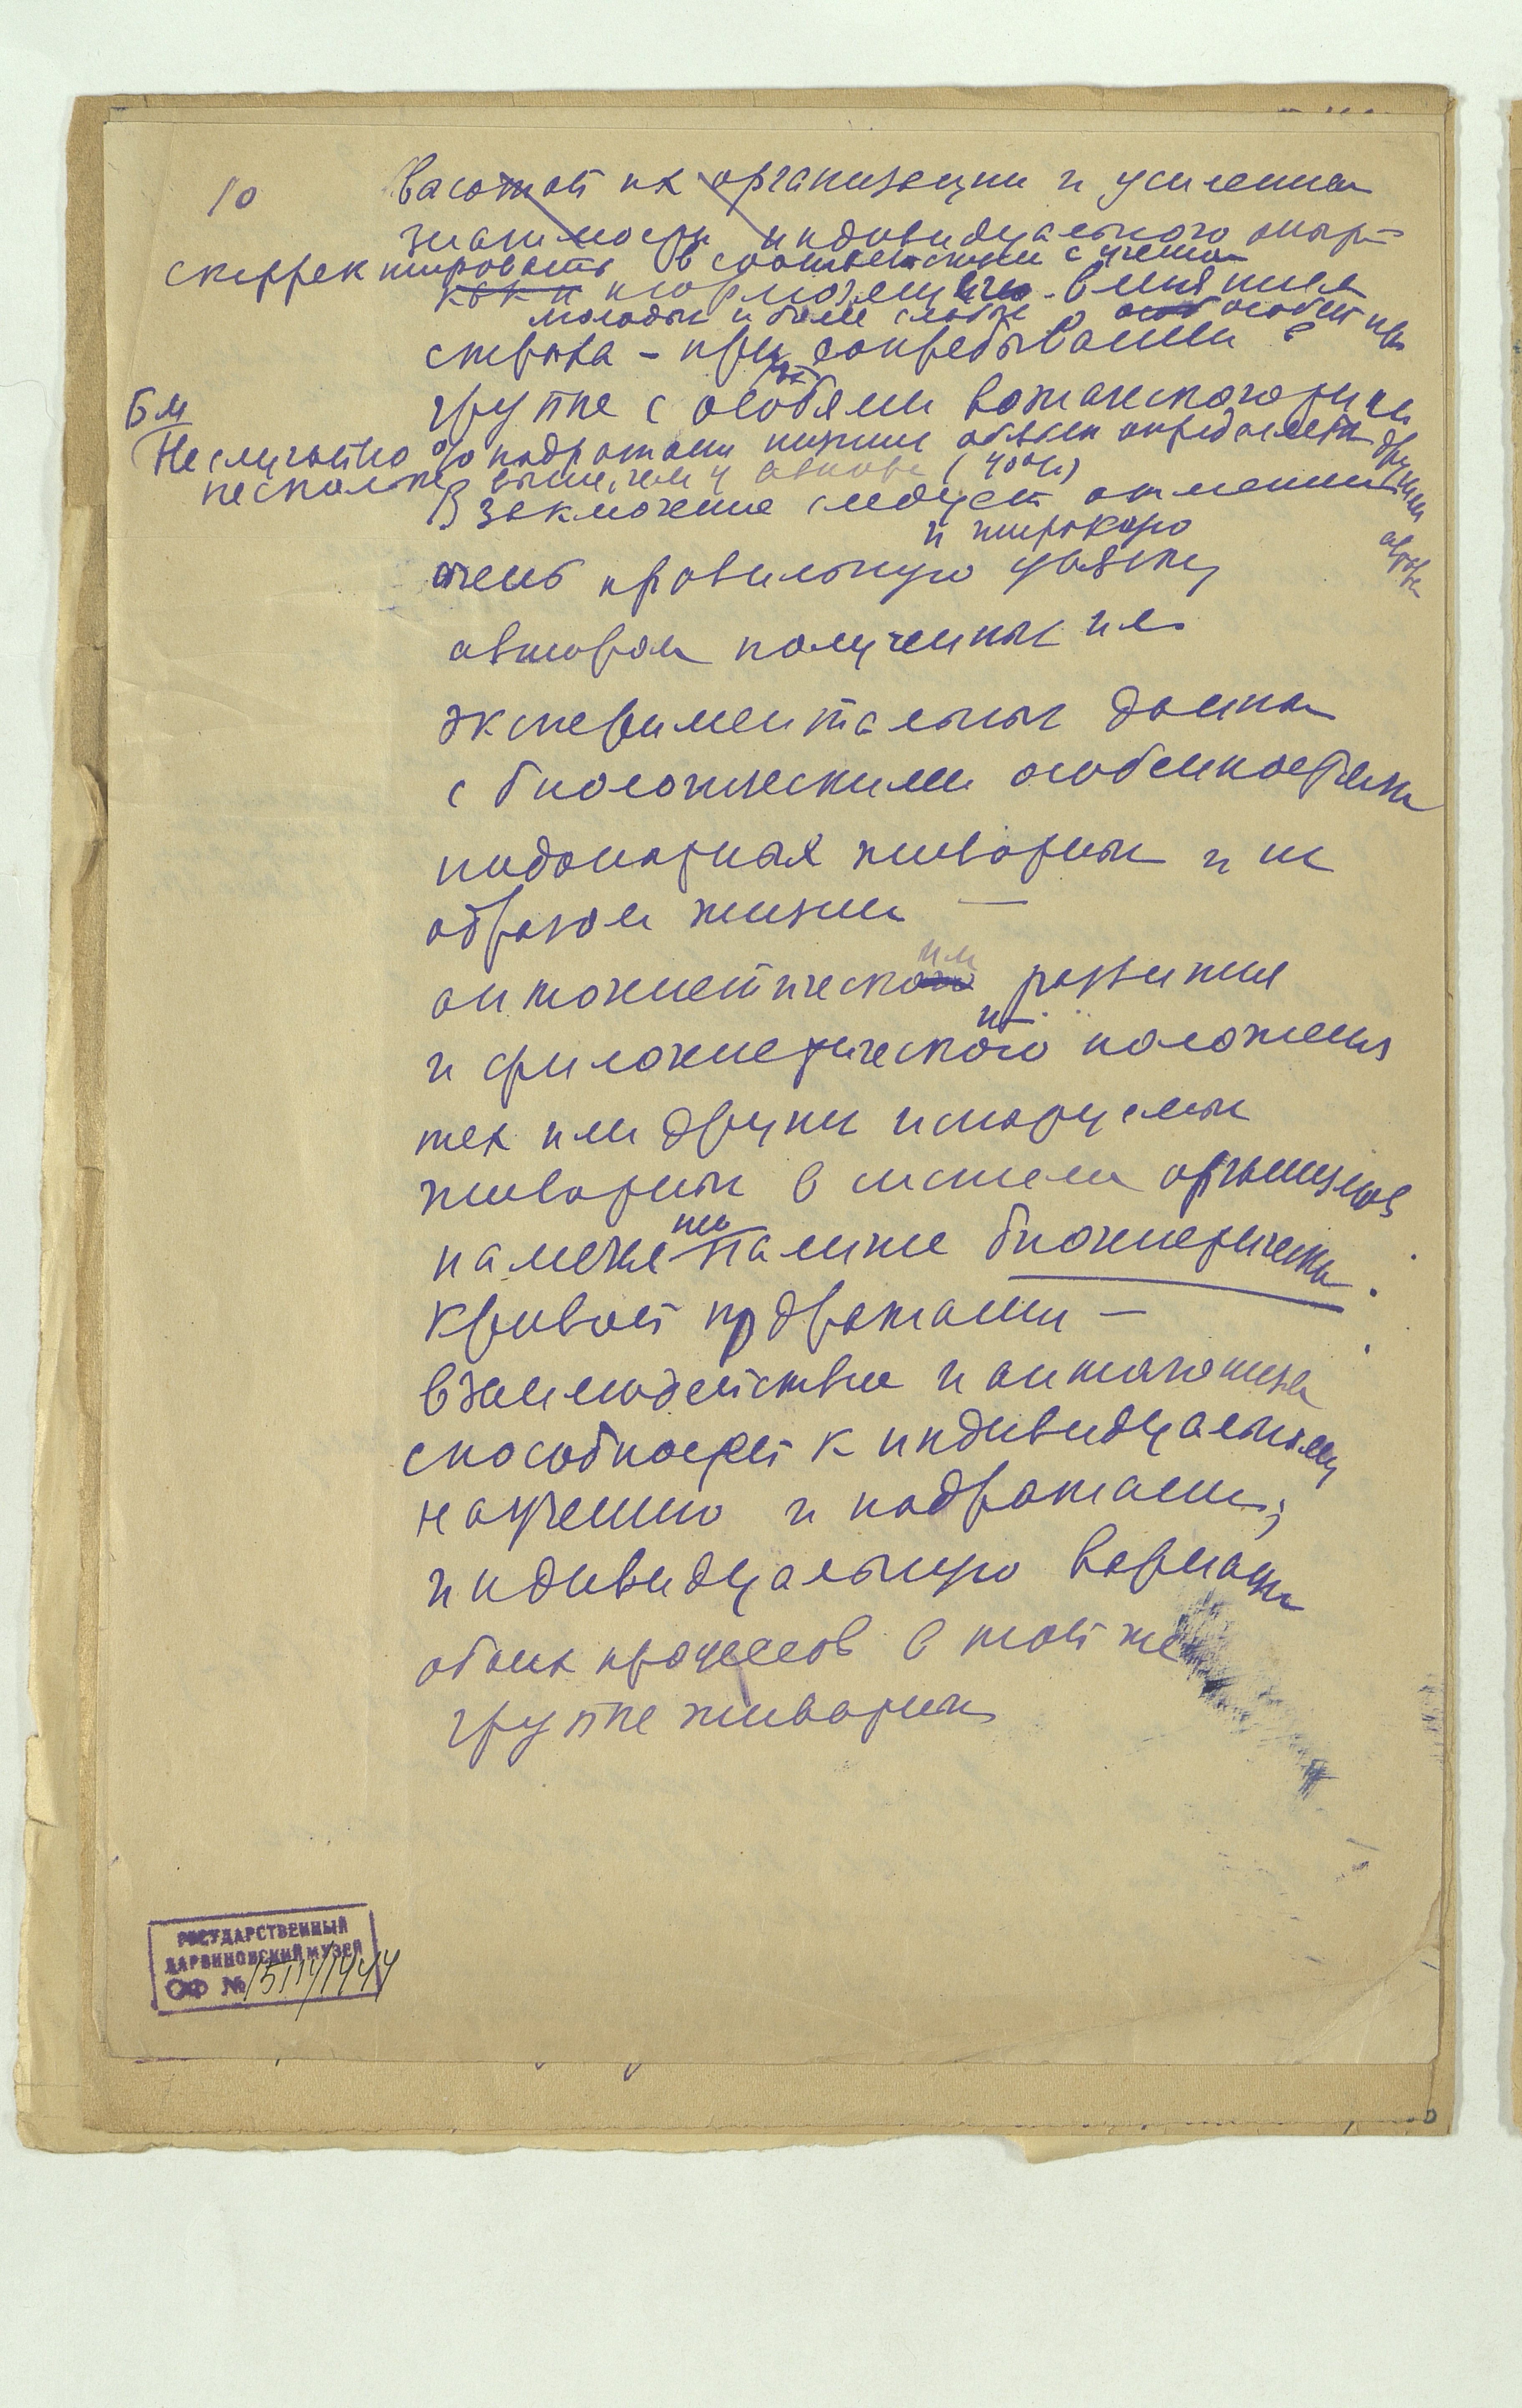 10
высотой их организации и усилением
значимости индивидуального опыта
скорректировать в соответствии с учетом
как и тормозящего влияния
молодых и более слабых особей при
страха - при сопребывании в
группе с особями вожаческого
Бм
Не случайно % подражания низшим обезьян определяется другими
несколько выше, чем у автора (40%)
В заключение следует отметить
и широкую
очень правильную увязку
автором полученных им
экспериментальных данных
с биологическими особенностями
подопытных животных и их
образом жизни —
онтогенетического развития
и филогенетического положения
тех или других испытуемых
животных в системе организмов
намечен наличие биогенетической
кривой подражания —
взаимодействие и антагонизм
способностей к индивидуальному
научению и подражанию;
индивидуальную вариацию
обоих процессов в той же
группе животных
ГОСУДАРСТВЕННЫЙ
ДАРВИНОВСКИЙ МУЗЕЙ
ОФ №